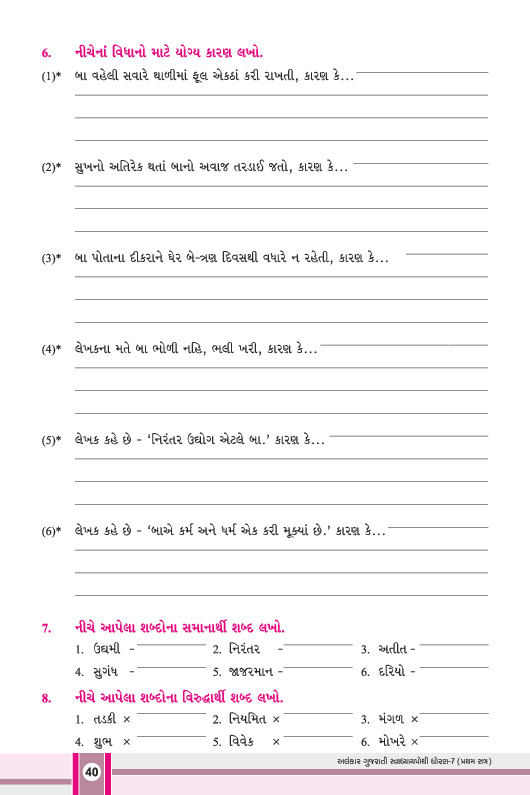 6. નીચેનાં વિધાનો માટે યોગ્ય કારણ લખો.
(1)* બા વહેલી સવારે થાળીમાં ફૂલ એકઠાં કરી રાખતી, કારણ કે...
(2)* સુખનો અતિરેક થતાં બાનો અવાજ તરડાઈ જતો, કારણ કે...
(3)* બા પોતાના દીકરાને ઘેર બે-ત્રણ દિવસથી વધારે ન રહેતી, કારણ કે...
(4)* લેખકના મતે બા ભોળી નહિ, ભલી ખરી, કારણ કે...
(5)* લેખક કહે છે - ‘નિરંતર ઉદ્યોગ એટલે બા.’ કારણ કે...
(6)* લેખક કહે છે - ‘બાએ કર્મ અને ધર્મ એક કરી મૂક્યાં છે.’ કારણ કે...
7. નીચે આપેલા શબ્દોના સમાનાર્થી શબ્દ લખો.
1. ઉદ્યમી - 2. નિરંતર - 3. અતીત -
4. સુગંધ - 5. જાજરમાન - 6. દરિયો -
8. નીચે આપેલા શબ્દોના વિરુદ્ધાર્થી શબ્દ લખો.
1. તડકી × 2. નિયમિત × 3. મંગળ ×
4. શુભ × 5. વિવેક × 6. મોખરે ×
અલંકાર ગુજરાતી સ્વાધ્યાયપોથી ધોરણ-7 (પ્રથમ સત્ર)
40